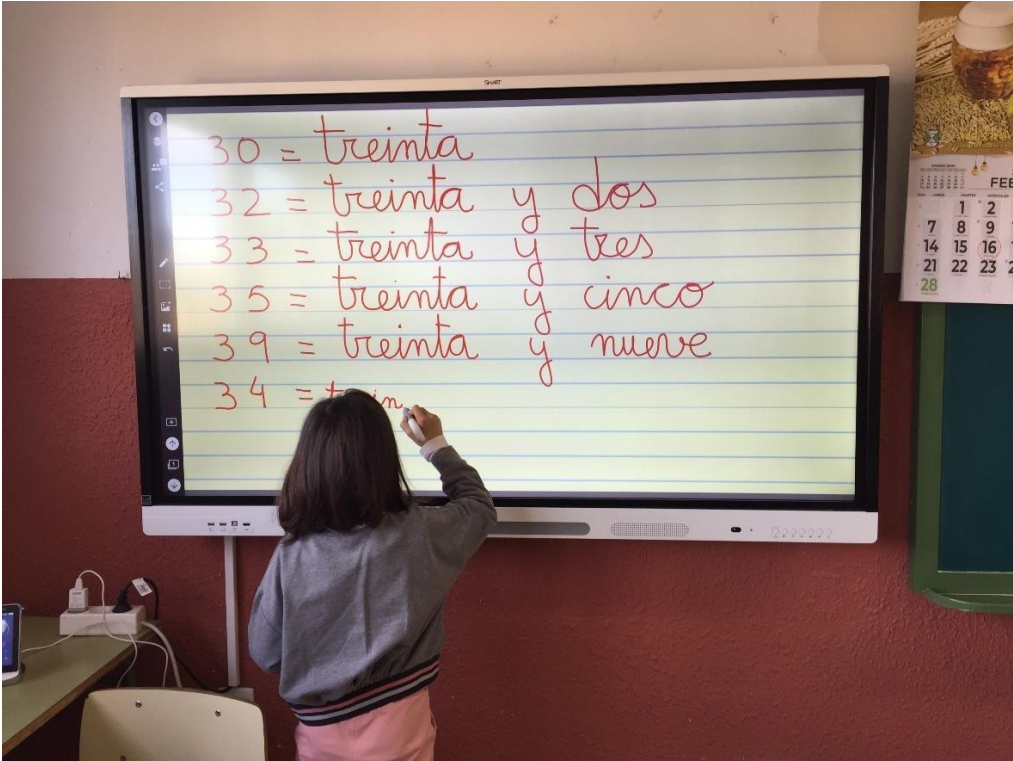 SMART
30 = treinta
32 = treinta y dos
33 = treinta y tres
35 = treinta y cinco
39 = treinta y nueve
34 = trein
FEB
1 2
7 8 9
14 15 16
21 22 23
28